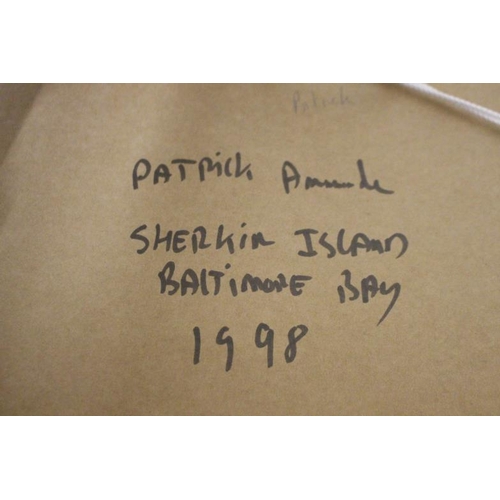 Patrick
PATRICK
SHERKIN ISLAND
BALTIMORE BAY
1998